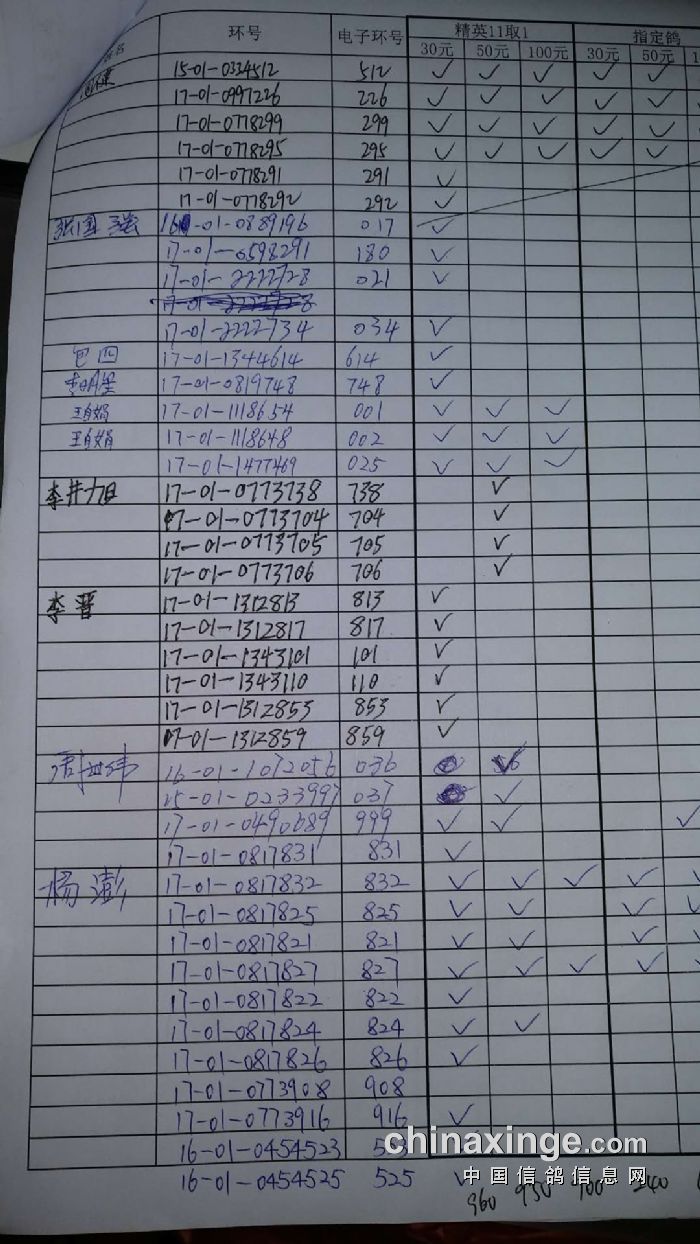 名 环号 电子环号 精英11取1 指定鸽
30元 50元 100元 30元 50元 1
15-01-0334512 512 ✓ ✓ ✓ ✓ ✓
17-01-0997226 226 ✓ ✓ ✓ ✓ ✓
17-01-0778299 299 ✓ ✓ ✓ ✓ ✓
17-01-0778295 295 ✓ ✓ ✓ ✓ ✓
17-01-0778291 291 ✓
17-01-0778292 292 ✓
张国强 16-01-0889196 017 ✓
17-01-0598291 180 ✓
17-01-2222728 021 ✓
17-01-2222734 034 ✓
包四 17-01-1344614 614 ✓
17-01-0819748 748 ✓
17-01-1118654 001 ✓ ✓ ✓
17-01-1118648 002 ✓ ✓ ✓
17-01-1477469 025 ✓ ✓ ✓
李井力 17-01-0773738 738 ✓
17-01-0773704 704 ✓
17-01-0773705 705 ✓
17-01-0773706 706 ✓
李晋 17-01-1312813 813 ✓
17-01-1312817 817 ✓
17-01-1343101 101 ✓
17-01-1343110 110 ✓
17-01-1312853 853 ✓
17-01-1312859 859 ✓
16-01-1072056 036
15-01-0233997 037 ✓
17-01-0490689 999 ✓ ✓ ✓
17-01-0817831 831 ✓
杨澎 17-01-0817832 832 ✓ ✓ ✓ ✓ ✓
17-01-0817825 825 ✓ ✓ ✓ ✓
17-01-0817821 821 ✓ ✓ ✓ ✓
17-01-0817827 827 ✓ ✓ ✓ ✓ ✓
17-01-0817822 822 ✓
17-01-0817824 824 ✓ ✓
17-01-0817826 826 ✓
17-01-0773908 908
17-01-0773916 916 ✓
16-01-0454523
16-01-0454525 525 ✓
960 950 900 240
chinaxinge.com
中国信鸽信息网